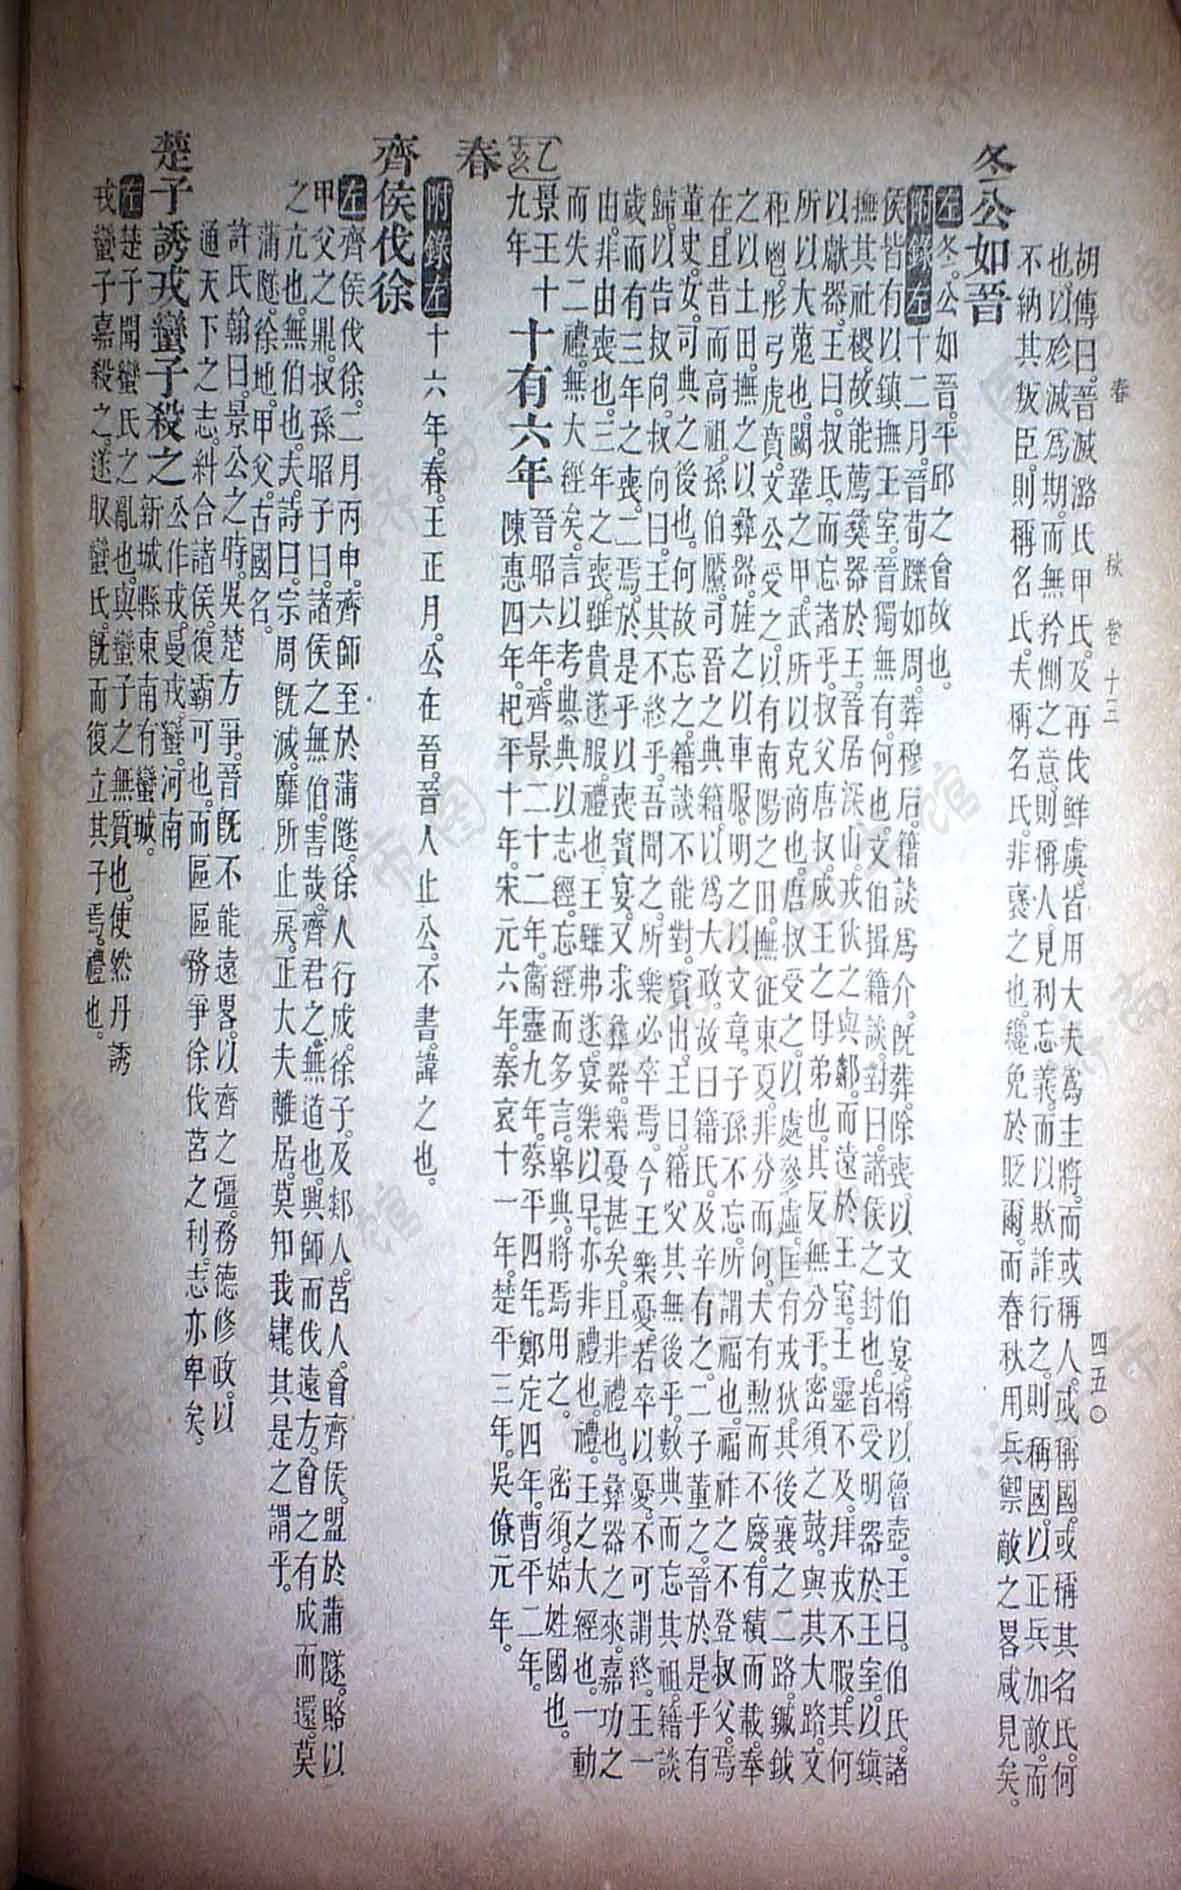 春 秋 卷十三 四五〇
胡傳曰。晉滅潞氏甲氏。及再伐鮮虞。皆用大夫爲主將。而或稱人。或稱國。或稱其名氏。何
也。以殄滅爲期。而無矜惻之意。則稱人。見利忘義。而以欺詐行之。則稱國。以正兵加敵。而
不納其叛臣。則稱名氏。夫稱名氏。非褒之也。纔免於貶爾。而春秋用兵禦敵之畧咸見矣。
冬公如晉
左冬。公如晉。平邱之會故也。
附錄左十二月。晉荀躒如周。葬穆后。籍談爲介。旣葬。除喪。以文伯宴。樽以魯壺。王曰。伯氏。諸
侯皆有以鎮撫王室。晉獨無有。何也。文伯揖籍談。對曰。諸侯之封也。皆受明器於王室。以鎮
撫其社稷。故能薦彝器於王。晉居深山。戎狄之與鄰。而遠於王室。王靈不及。拜戎不暇。其何
以獻器。王曰。叔氏而忘諸乎。叔父唐叔。成王之母弟也。其反無分乎。密須之鼓。與其大路。文
所以大蒐也。闕鞏之甲。武所以克商也。唐叔受之。以處參虛。匡有戎狄。其後襄之二路。鏚鉞
秬鬯。彤弓虎賁。文公受之。以有南陽之田。撫征東夏。非分而何。夫有勳而不廢。有績而載。奉
之以土田。撫之以彝器。旌之以車服。明之以文章。子孫不忘。所謂福也。福祚之不登叔父。焉
在。且昔而高祖孫伯黶。司晉之典籍。以爲大政。故曰籍氏。及辛有之二子董之。晉於是乎有
董史。女。司典之後也。何故忘之。籍談不能對。賓出。王曰。籍父其無後乎。數典而忘其祖。籍談
歸。以告叔向。叔向曰。王其不終乎。吾聞之。所樂必卒焉。今王樂憂。若卒以憂。不可謂終。王一
歲而有三年之喪二焉。於是乎以喪賓宴。又求彝器。樂憂甚矣。且非禮也。彝器之來。嘉功之
由。非由喪也。三年之喪。雖貴遂服。禮也。王雖弗遂。宴樂以早。亦非禮也。禮。王之大經也。一動
而失二禮。無大經矣。言以考典。典以志經。忘經而多言。舉典。將焉用之。 密須。姞姓國也。
乙亥 景王十九年 十有六年 晉昭六年。齊景二十二年。衞靈九年。蔡平四年。鄭定四年。曹平二年。
陳惠四年。杞平十年。宋元六年。秦哀十一年。楚平三年。吳僚元年。
春
附錄左十六年。春。王正月。公在晉。晉人止公。不書。諱之也。
齊侯伐徐
左齊侯伐徐。二月丙申。齊師至於蒲隧。徐人行成。徐子。及郯人。莒人。會齊侯。盟於蒲隧。賂以
甲父之鼎。叔孫昭子曰。諸侯之無伯。害哉。齊君之無道也。興師而伐遠方。會之有成而還。莫
之亢也。無伯也。夫。詩曰。宗周旣滅。靡所止戾。正大夫離居。莫知我肄。其是之謂乎。
蒲隧。徐地。甲父。古國名。
許氏翰曰。景公之時。吳楚方爭。晉旣不能遠畧。以齊之彊。務德修政。以
通天下之志。糾合諸侯。復霸可也。而區區務爭徐伐莒之利。志亦卑矣。
楚子誘戎蠻子殺之 公作戎曼。戎蠻。河南
新城縣東南有蠻城。
左楚子聞蠻氏之亂也。與蠻子之無質也。使然丹誘
戎蠻子嘉。殺之。遂取蠻氏。旣而復立其子焉。禮也。